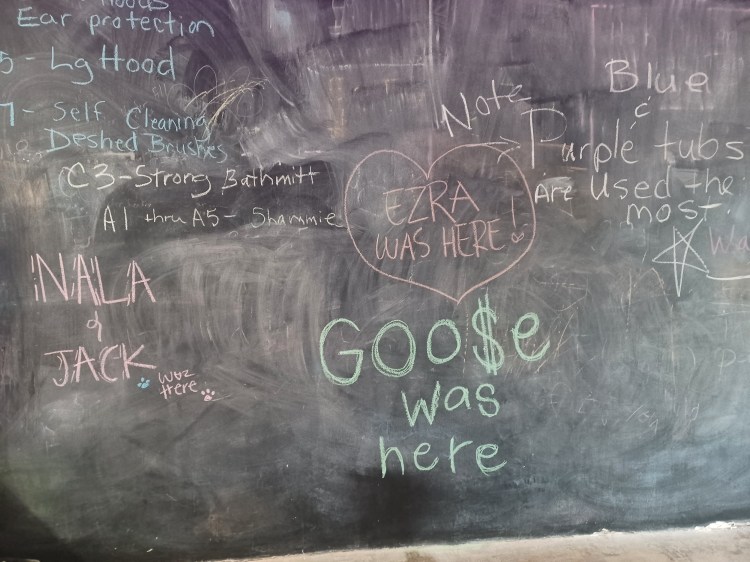 Hoods
Ear protection
5 - Lg Hood
7 - Self Cleaning
Deshed Brushes
C3 - Strong Bathmitt
A1 thru A5 - Shammie
NALA
&
JACK
Waz
Here
EZRA
WAS HERE!
GOO$e
was
here
Note
Blue
&
Purple tubs
Are used the
most